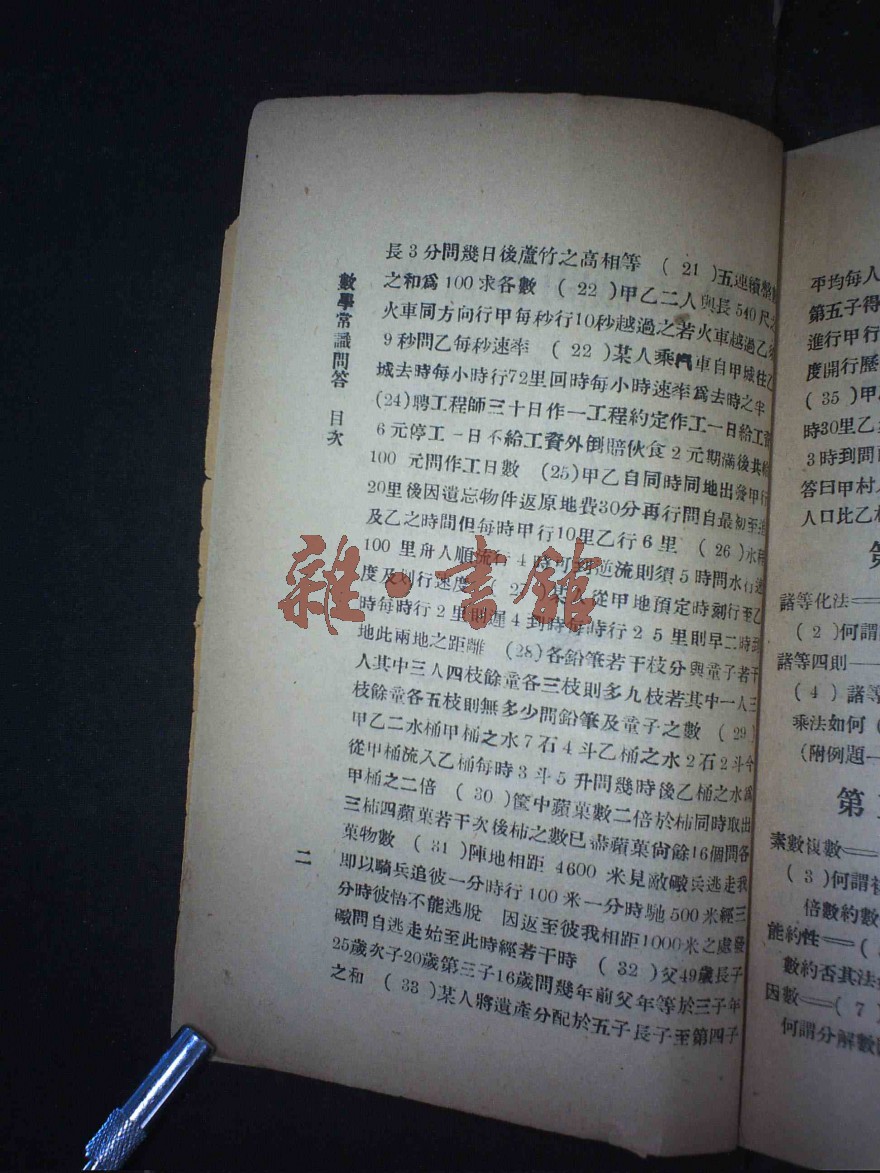 數學常識問答 目次
二
長3分問幾日後蘆竹之高相等 (21)五連續整
之和爲100求各數 (22)甲乙二人與長540尺
火車同方向行甲每秒行10秒越過之若火車越過乙
9秒問乙每秒速率 (22)某人乘汽車自甲城往乙
城去時每小時行72里回時每小時速率爲去時之半
(24)聘工程師三十日作一工程約定作工一日給工資
6元停工一日不給工資外倒賠伙食2元期滿後共
100元問作工日數 (25)甲乙自同時同地出發甲行
20里後因遺忘物件返原地費30分再行問自最初至
及乙之時間但每時甲行10里乙行6里 (26)水
100里舟人順流行4時可到逆流則須5時問水行
度及划行速度 27 從甲地預定時刻行至乙
時每時行2里則遲4到時每時行25里則早二時
地此兩地之距離 (28)各鉛筆若干枝分與童子若干
人其中三人四枝餘童各三枝則多九枝若其中一人三
枝餘童各五枝則無多少問鉛筆及童子之數 (29)
甲乙二水桶甲桶之水7石4斗乙桶之水2石2斗今
從甲桶流入乙桶每時3斗5升問幾時後乙桶之水爲
甲桶之二倍 (30)筐中蘋菓數二倍於柿同時取出
三柿四蘋菓若干次後柿之數已盡蘋菓尙餘16個問各
菓物數 (31)陣地相距4600米見敵礮兵逃走我
卽以騎兵追彼一分時行100米一分時馳500米經三
分時彼怡不能逃脫 因返至彼我相距1000米之處發
礮問自逃走始至此時經若干時 (32)父49歲長子
25歲次子20歲第三子16歲問幾年前父年等於三子年
之和 (33)某人將遺產分配於五子長子至第四子
平均每人
第五子得
進行甲行
度開行歷
(35)甲
時30里乙
3時到問
答曰甲村
人口比乙
第
諸等化法
(2)何謂
諸等四則
(4)諸等
乘法如何
(附例題
第
素數複數
(3)何謂
倍數約數
能約性
數約否其法
因數 (7)
何謂分解數
雜·書館